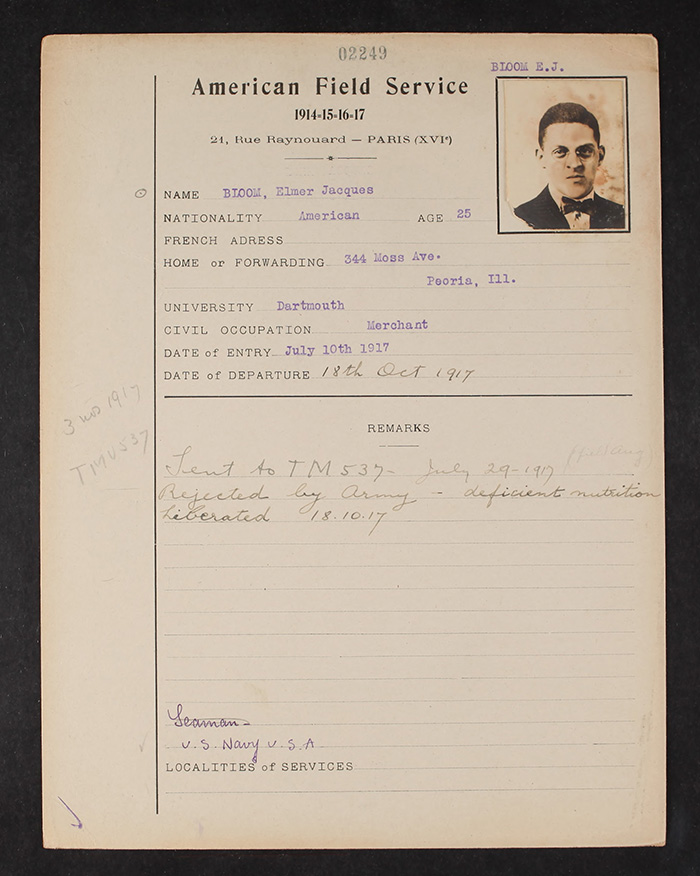 02249
BLOOM E.J.
American Field Service
1914-15-16-17
21, Rue Raynouard — PARIS (XVIᵉ)
NAME BLOOM, Elmer Jacques
NATIONALITY American AGE 25
FRENCH ADRESS
HOME or FORWARDING 344 Moss Ave.
Peoria, Ill.
UNIVERSITY Dartmouth
CIVIL OCCUPATION Merchant
DATE of ENTRY July 10th 1917
DATE of DEPARTURE 18th Oct 1917
3 nov 1917
TMU 537
REMARKS
Sent to TM 537- July 29-1917
Rejected by Army - deficient nutrition
Liberated 18.10.17
Seaman-
U.S. Navy U.S.A
LOCALITIES of SERVICES